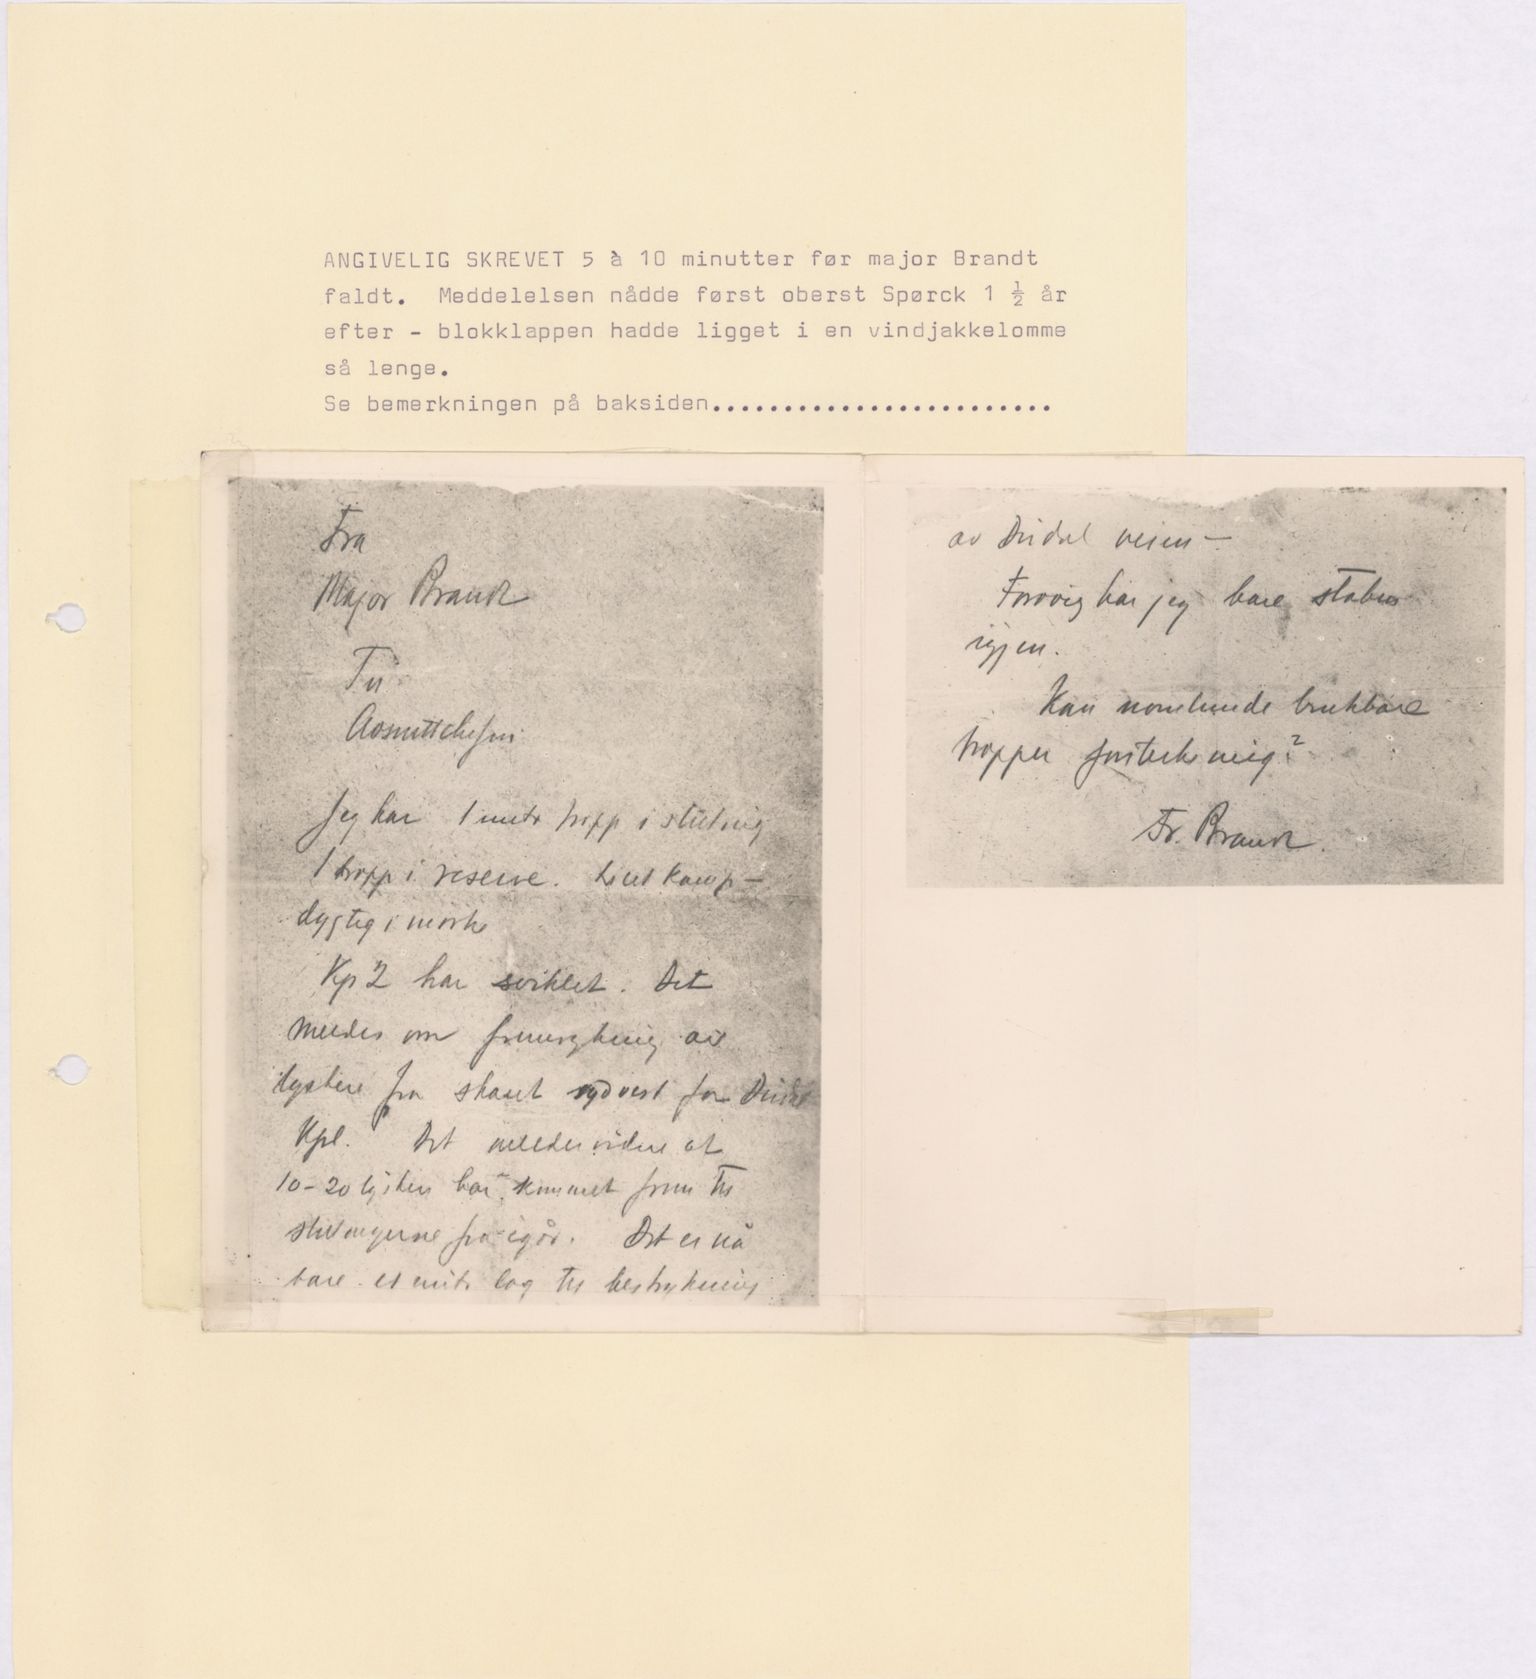 ANGIVELIG SKREVET 5 à 10 minutter før major Brandt
faldt. Meddelelsen nådde først oberst Spørck 1 ½ år
efter - blokklappen hadde ligget i en vindjakkelomme
så lenge.
Se bemerkningen på baksiden........................
Fra
Major Brandt
Til
Avsnittchefen
Jeg har 1 mitr tropp i stilling
1 tropp i reserve. Litet kamp-
dygtig i mørke
Kp 2 har sviktet. Det
meldes om fremrykning av
tyskere fra skaret sydvest for Dirdal
Kpl. Det meldes videre at
10-20 tyskere har kommet frem til
stillingerne fra igår. Det er nå
bare et mitr lag til bestrykning
av Dirdal veien -
Forøvrig har jeg bare staben
igjen.
Kan noenlunde brukbare
tropper forsterke meig?
Fr. Brandt.